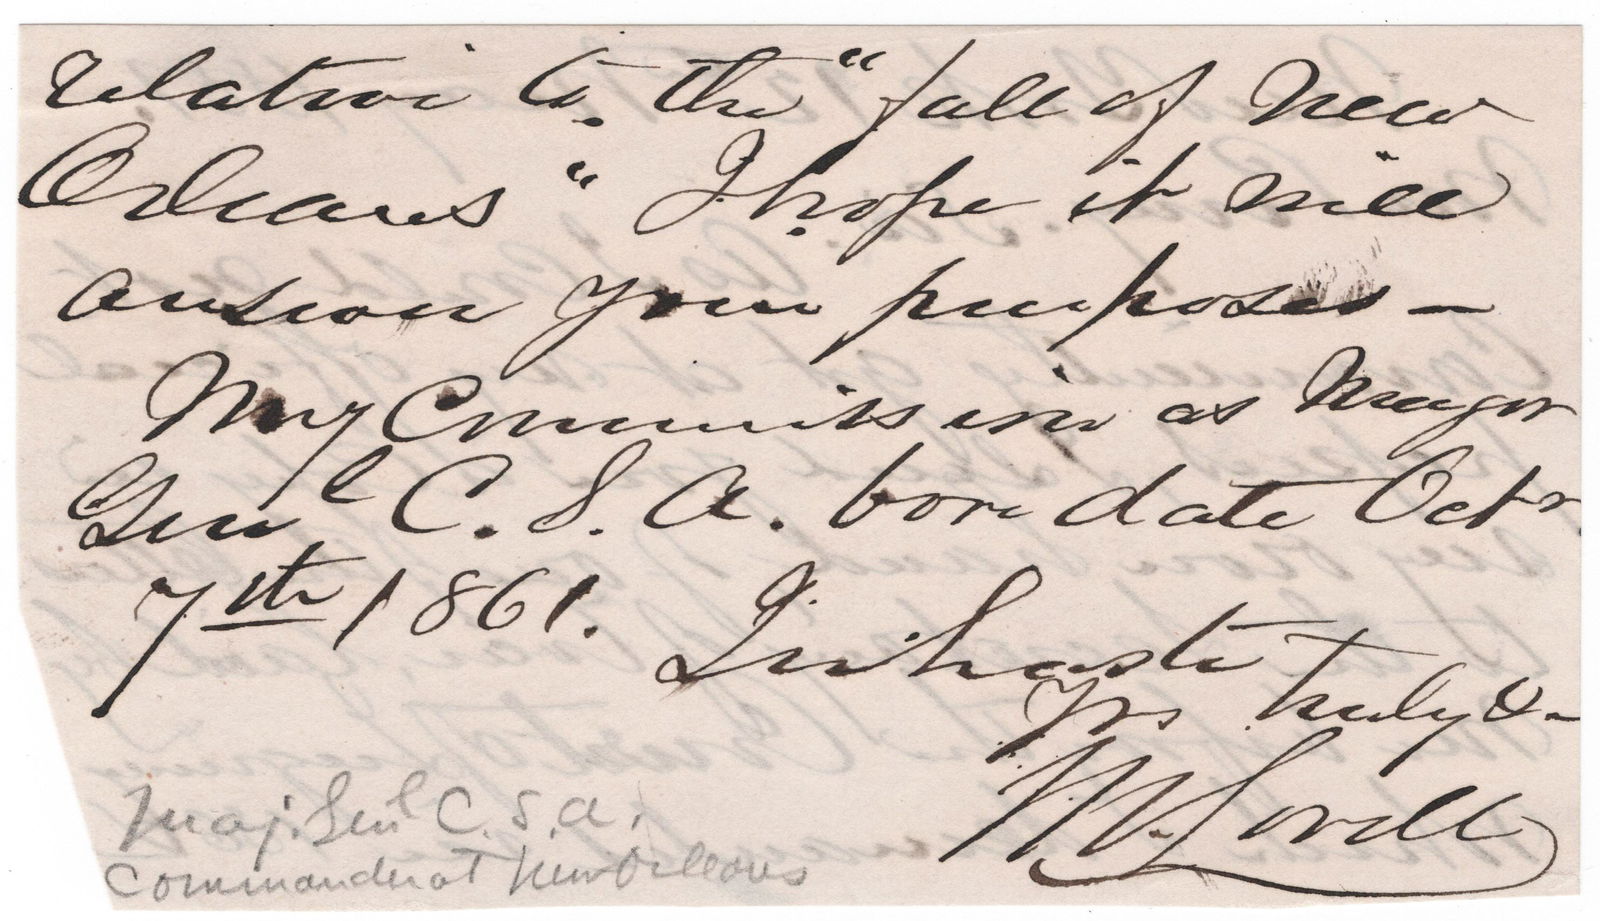 relative to the "fall of New
Orleans" I hope it will
answer your purposes –
My Commission as Major
Genl C. S. A. bore date Octr.
7th 1861.
In haste
Yrs truly &-
M. Lovell
Maj. Genl C. S. A.
Commander at New Orleans